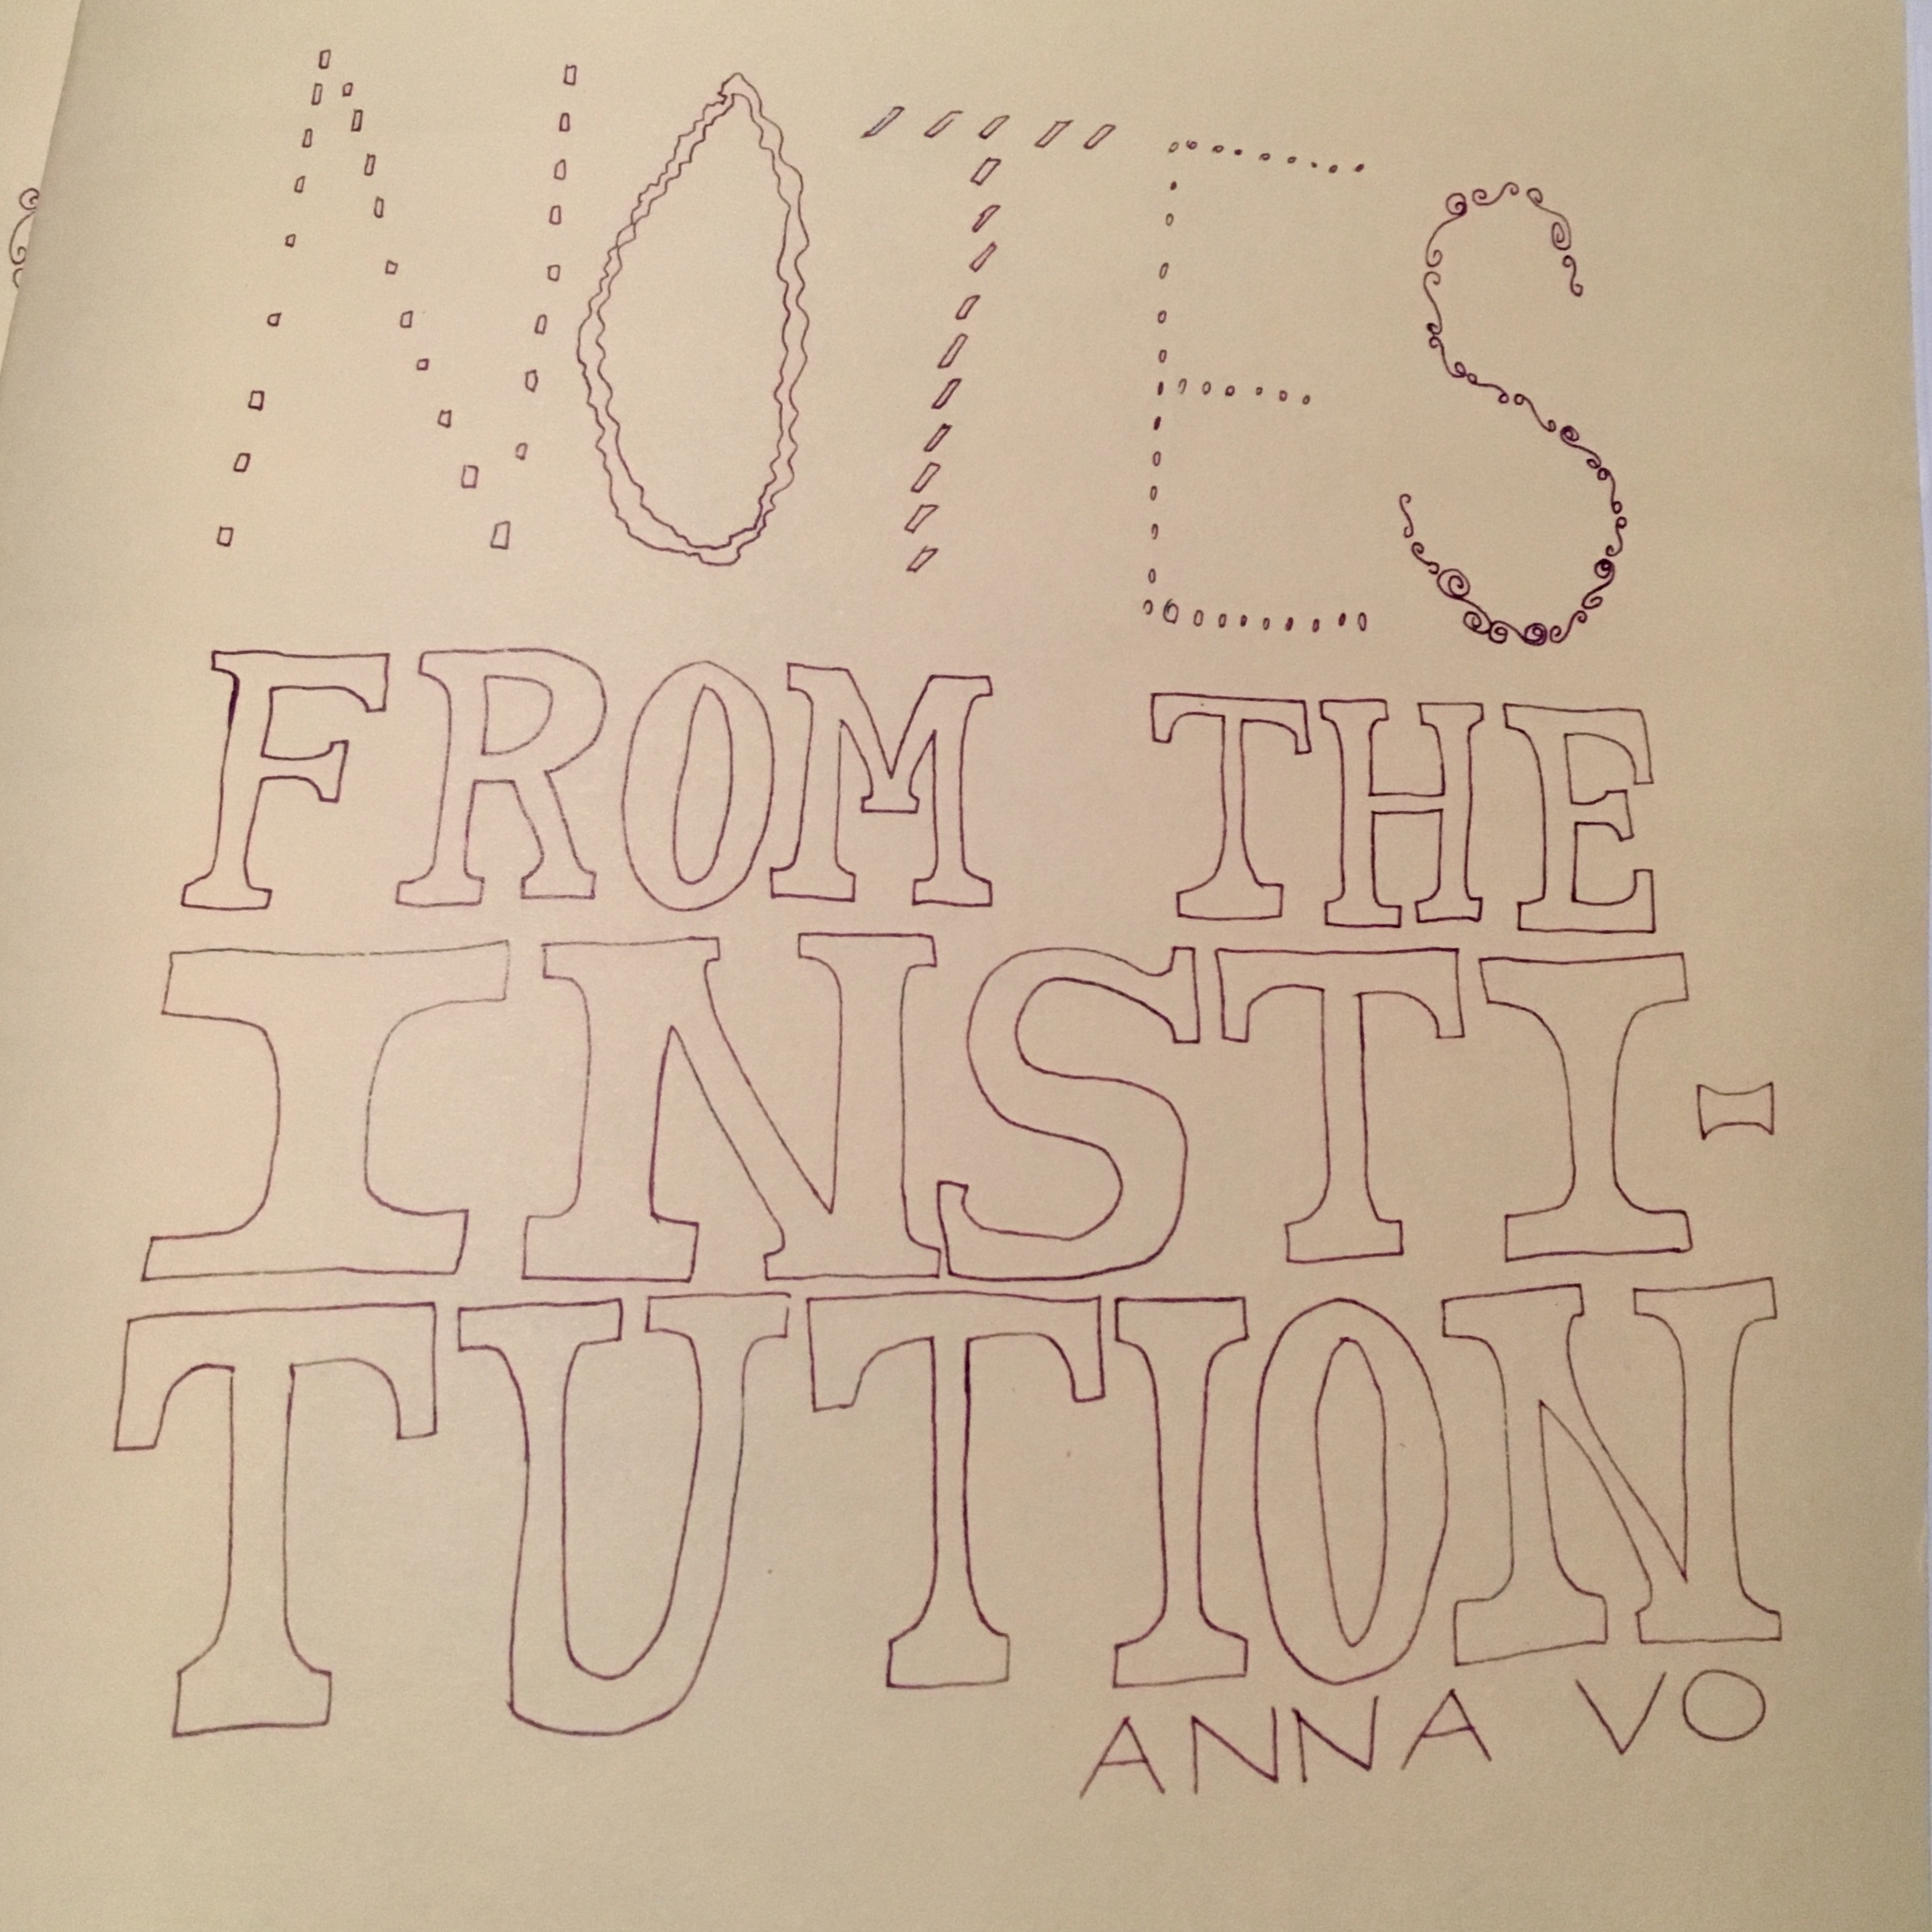 NOTES
FROM THE
INSTI-
TUTION
ANNA VO